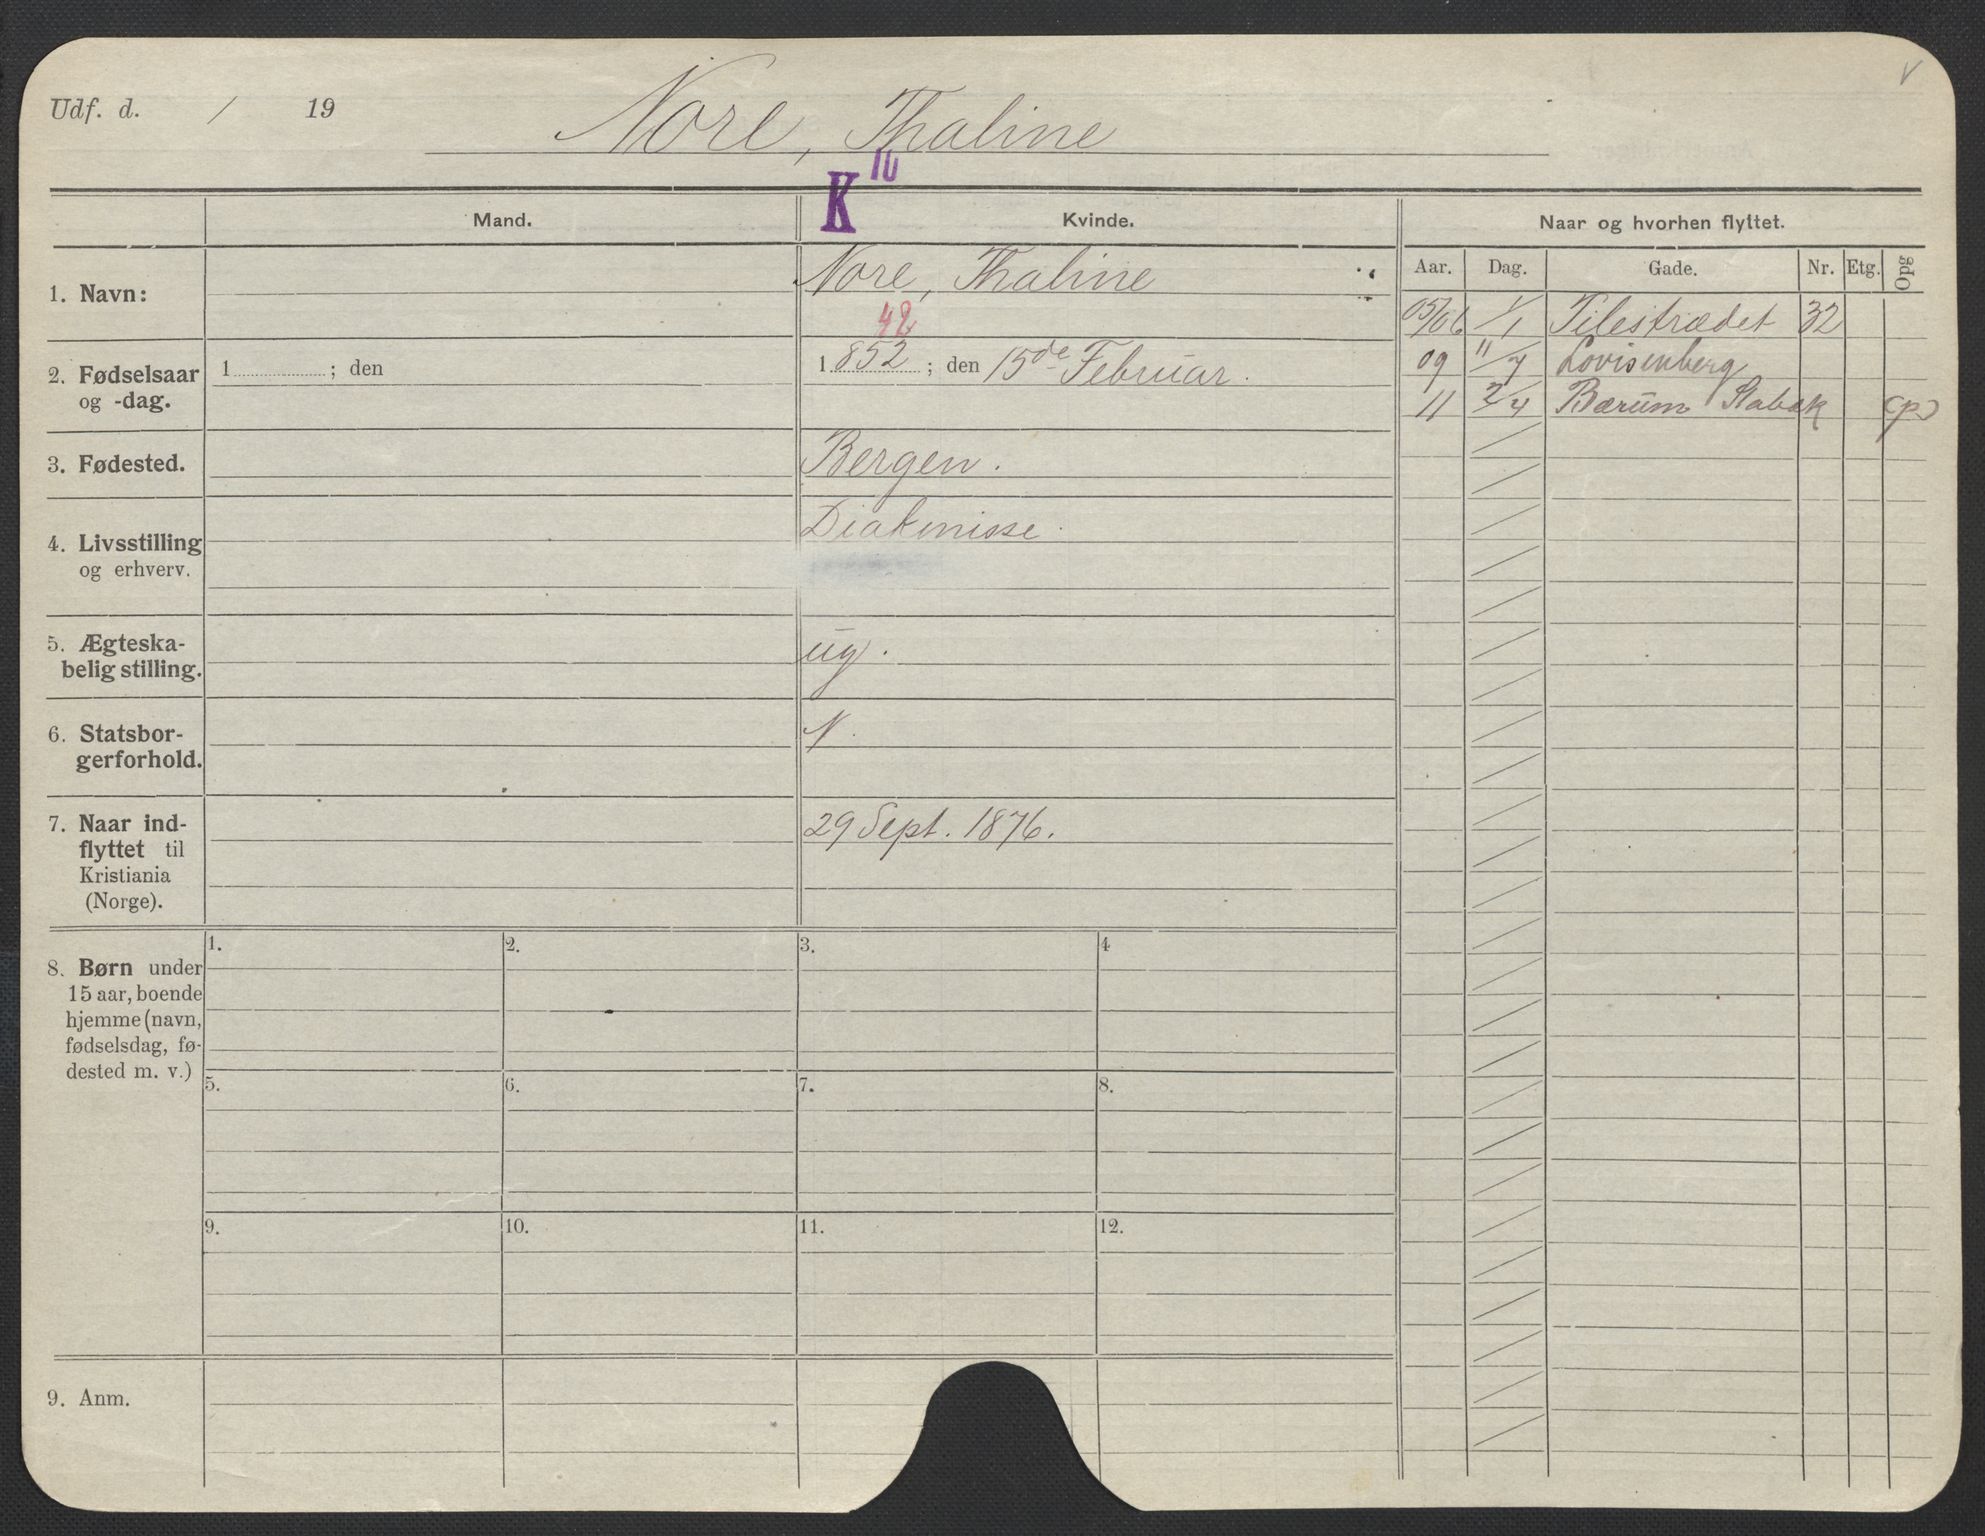 Udf. d. / 19
Nore, Thaline
K 10
Mand.
Kvinde.
Naar og hvorhen flyttet.
Aar. Dag. Gade. Nr. Etg. Opg
1. Navn:
Nore, Thaline
42
2. Fødselsaar
og -dag.
1 ; den
1852 ; den 15de Februar.
05/06 1/1 Pilestrædet 32
09 11/7 Lovisenberg
11 2/4 Bærum Stabæk (p)
3. Fødested.
Bergen.
4. Livsstilling
og erhverv.
Diakonisse.
5. Ægteska-
belig stilling.
ug.
6. Statsbor-
gerforhold.
N.
7. Naar ind-
flyttet til
Kristiania
(Norge).
29 Sept. 1876.
8. Børn under
15 aar, boende
hjemme (navn,
fødselsdag, fø-
dested m. v.)
1. 2. 3. 4
5. 6. 7. 8.
9. 10. 11. 12.
9. Anm.